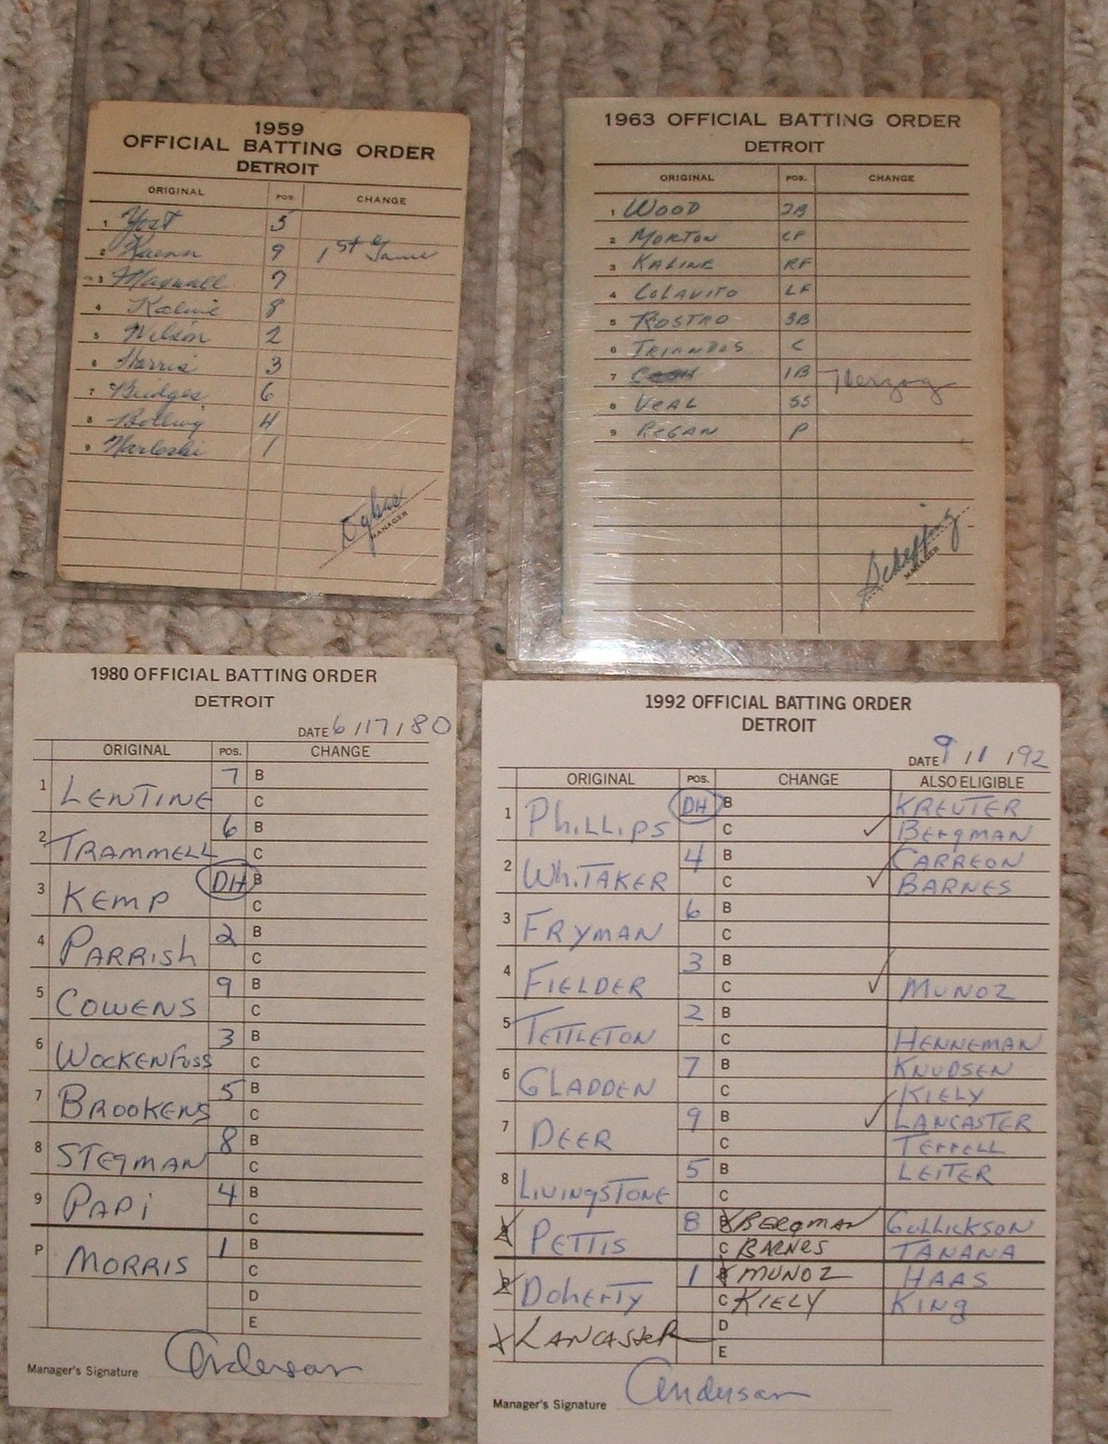 1959
OFFICIAL BATTING ORDER
DETROIT
ORIGINAL POS. CHANGE
1 Yost 5
2 Kuenn 9 1st Game
3 Maxwell 7
4 Kaline 8
5 Wilson 2
6 Harris 3
7 Bridges 6
8 Bolling 4
9 Narleski 1
Dykes
MANAGER
1963 OFFICIAL BATTING ORDER
DETROIT
ORIGINAL POS. CHANGE
1 WOOD 2B
2 MORTON CF
3 KALINE RF
4 COLAVITO LF
5 KOSTRO 3B
6 TRIANDOS C
7 CASH 1B Herzog
8 VEAL SS
9 REGAN P
Scheffing
MANAGER
1980 OFFICIAL BATTING ORDER
DETROIT
DATE 6/17/80
ORIGINAL POS. CHANGE
1 LENTINE 7 B
C
2 TRAMMELL 6 B
C
3 KEMP DH B
C
4 PARRISH 2 B
C
5 COWENS 9 B
C
6 WOCKENFUSS 3 B
C
7 BROOKENS 5 B
C
8 STEGMAN 8 B
C
9 PAPI 4 B
C
P MORRIS 1 B
C
D
E
Manager's Signature Anderson
1992 OFFICIAL BATTING ORDER
DETROIT
DATE 9/1/92
ORIGINAL POS. CHANGE ALSO ELIGIBLE
1 PHILLIPS DH B KREUTER
C ✓ BERGMAN
2 WHITAKER 4 B CARREON
C ✓ BARNES
3 FRYMAN 6 B
C
4 FIELDER 3 B
C ✓ MUNOZ
5 TETTLETON 2 B
C HENNEMAN
6 GLADDEN 7 B KNUDSEN
C KIELY
7 DEER 9 B ✓ LANCASTER
C TERRELL
8 LIVINGSTONE 5 B LEITER
C
9 PETTIS 8 B BERGMAN GULLICKSON
C BARNES TANANA
P DOHERTY 1 B MUNOZ HAAS
C KIELY KING
X LANCASTER D
E
Manager's Signature Anderson